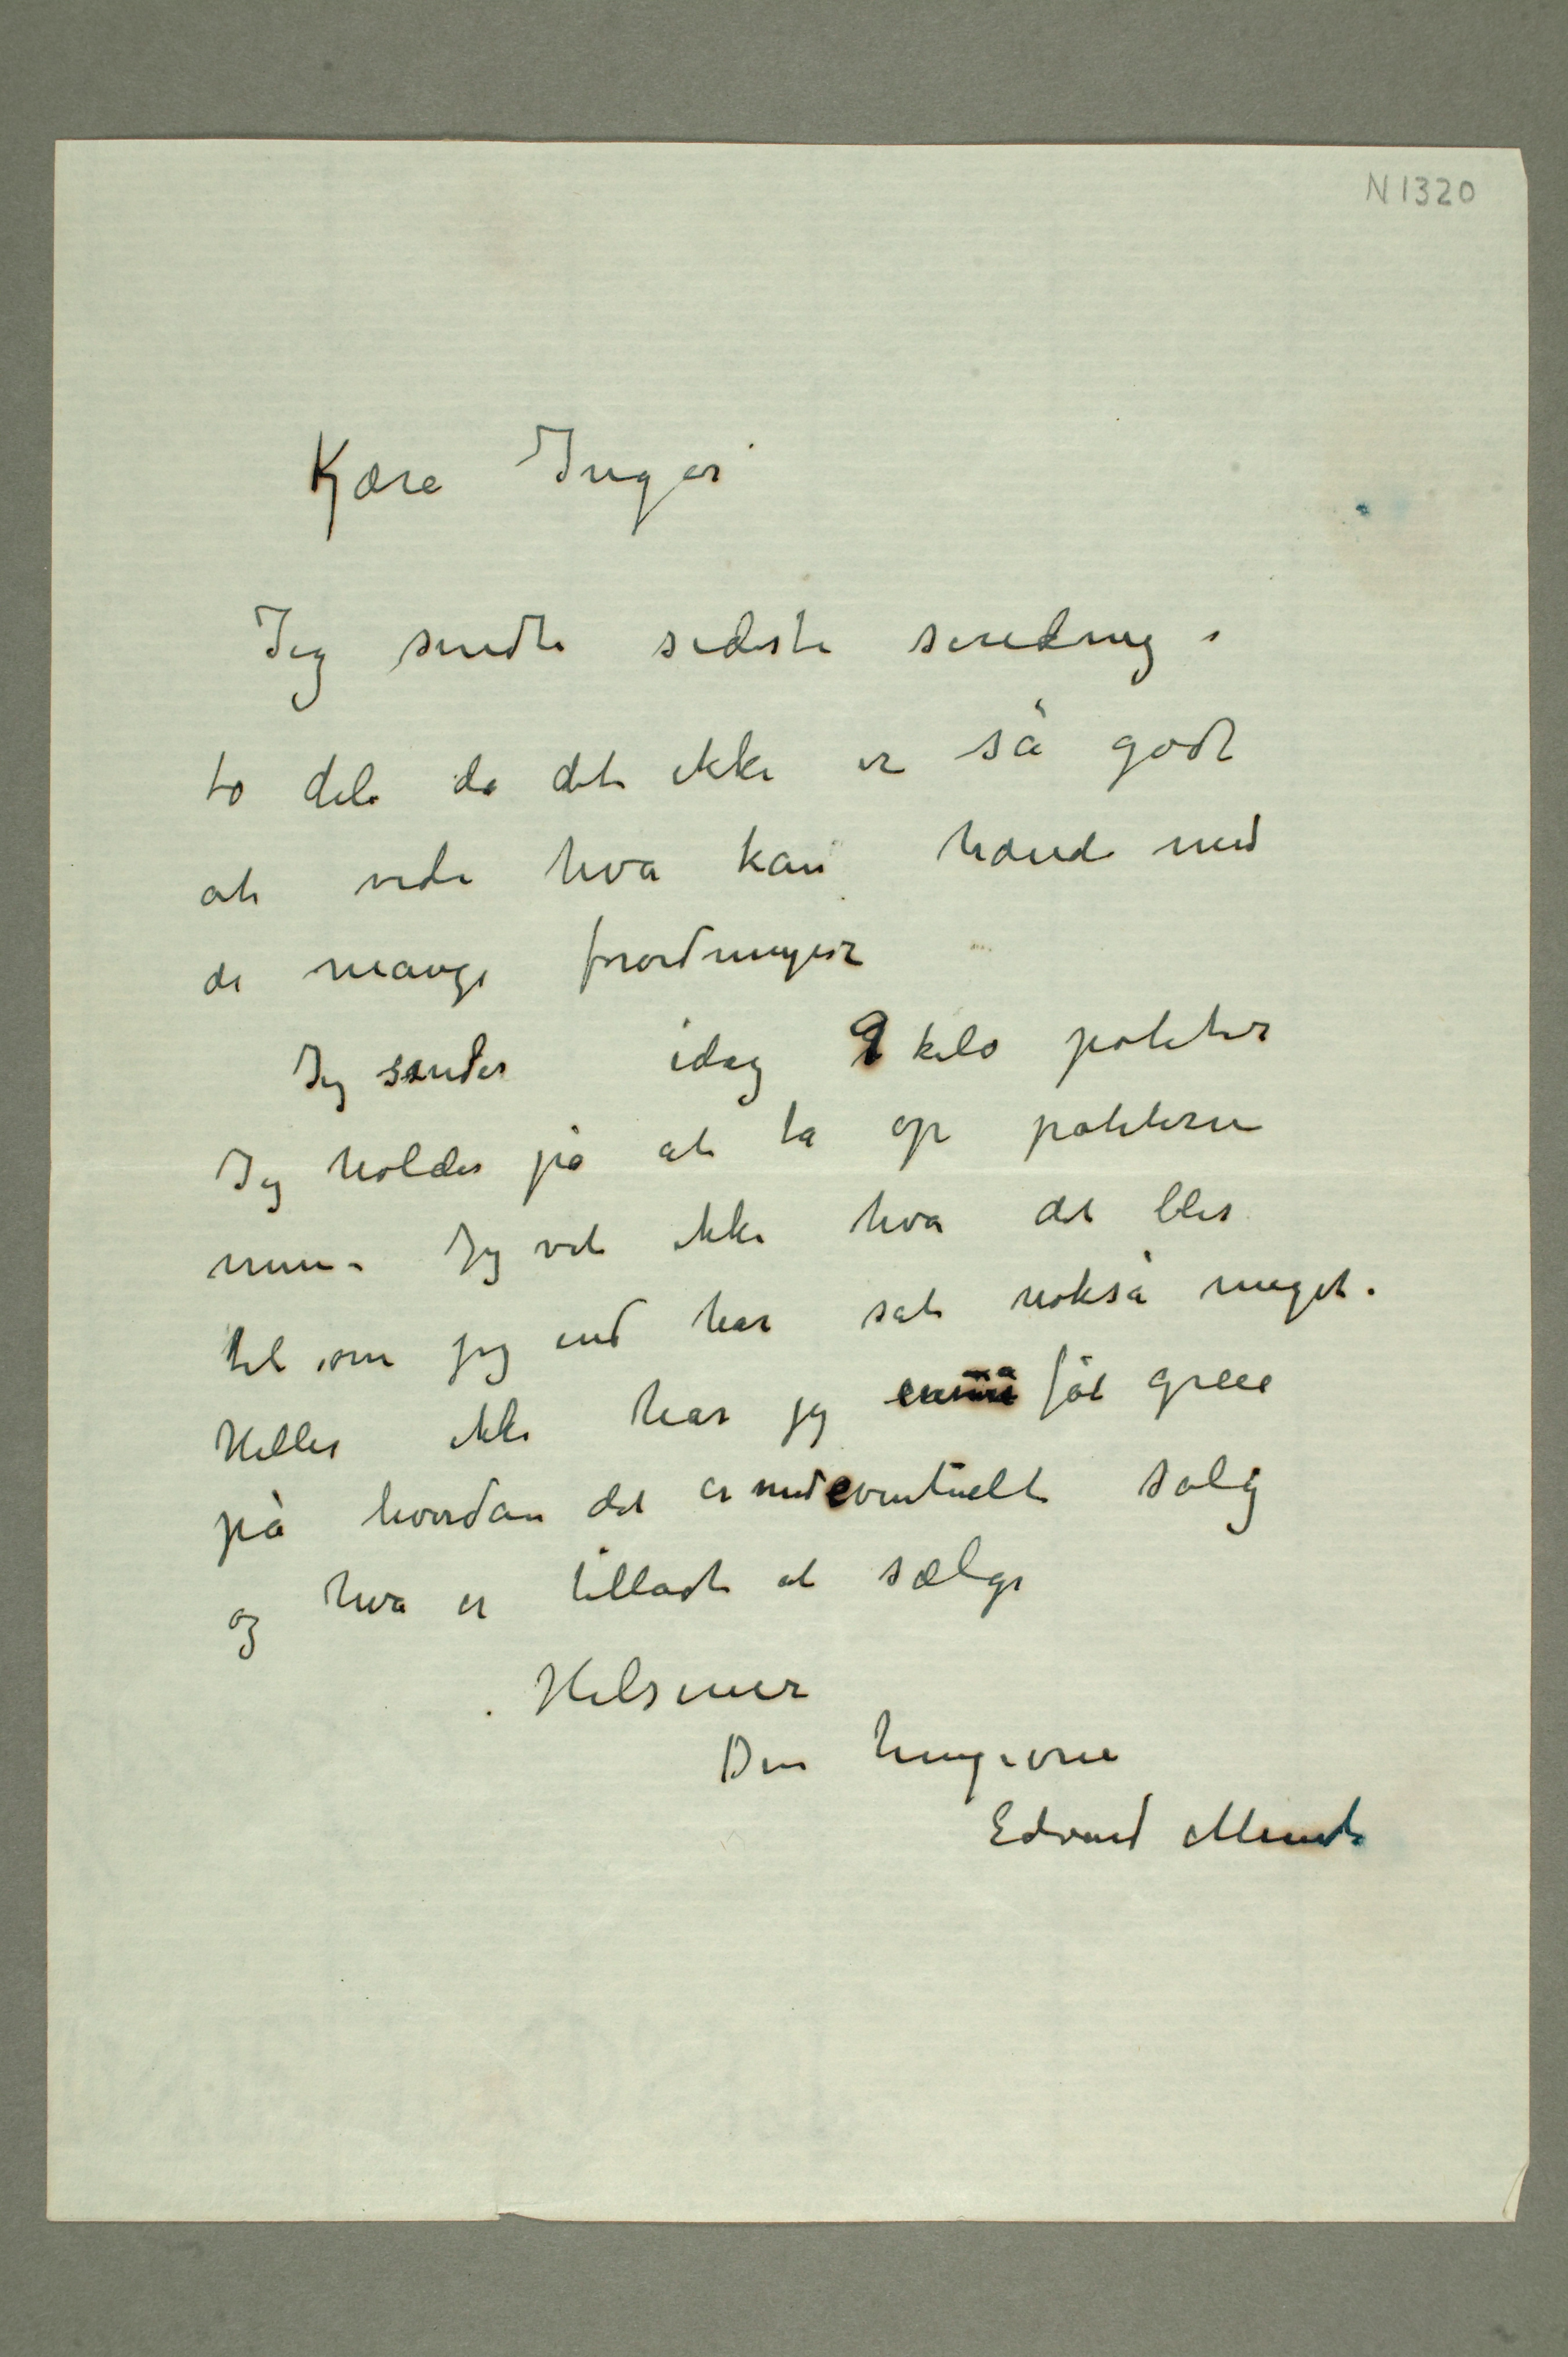 N 1320
Kjære Inger
Jeg sendte sidste sending i
to dele da det ikke er så godt
at vide hva kan hænde med
de mange forordninger
Jeg sender idag 9 kilo poteter
Jeg holder på at ta op poteterne
nu – Jeg vet ikke hva det blir
til om jeg end har sat nokså meget.
Heller ikke har jeg fåt greie
på hvordan det er med eventuelt salg
og hva er tilladt at sælge
Hilsener
Din hengivne
Edvard Munch